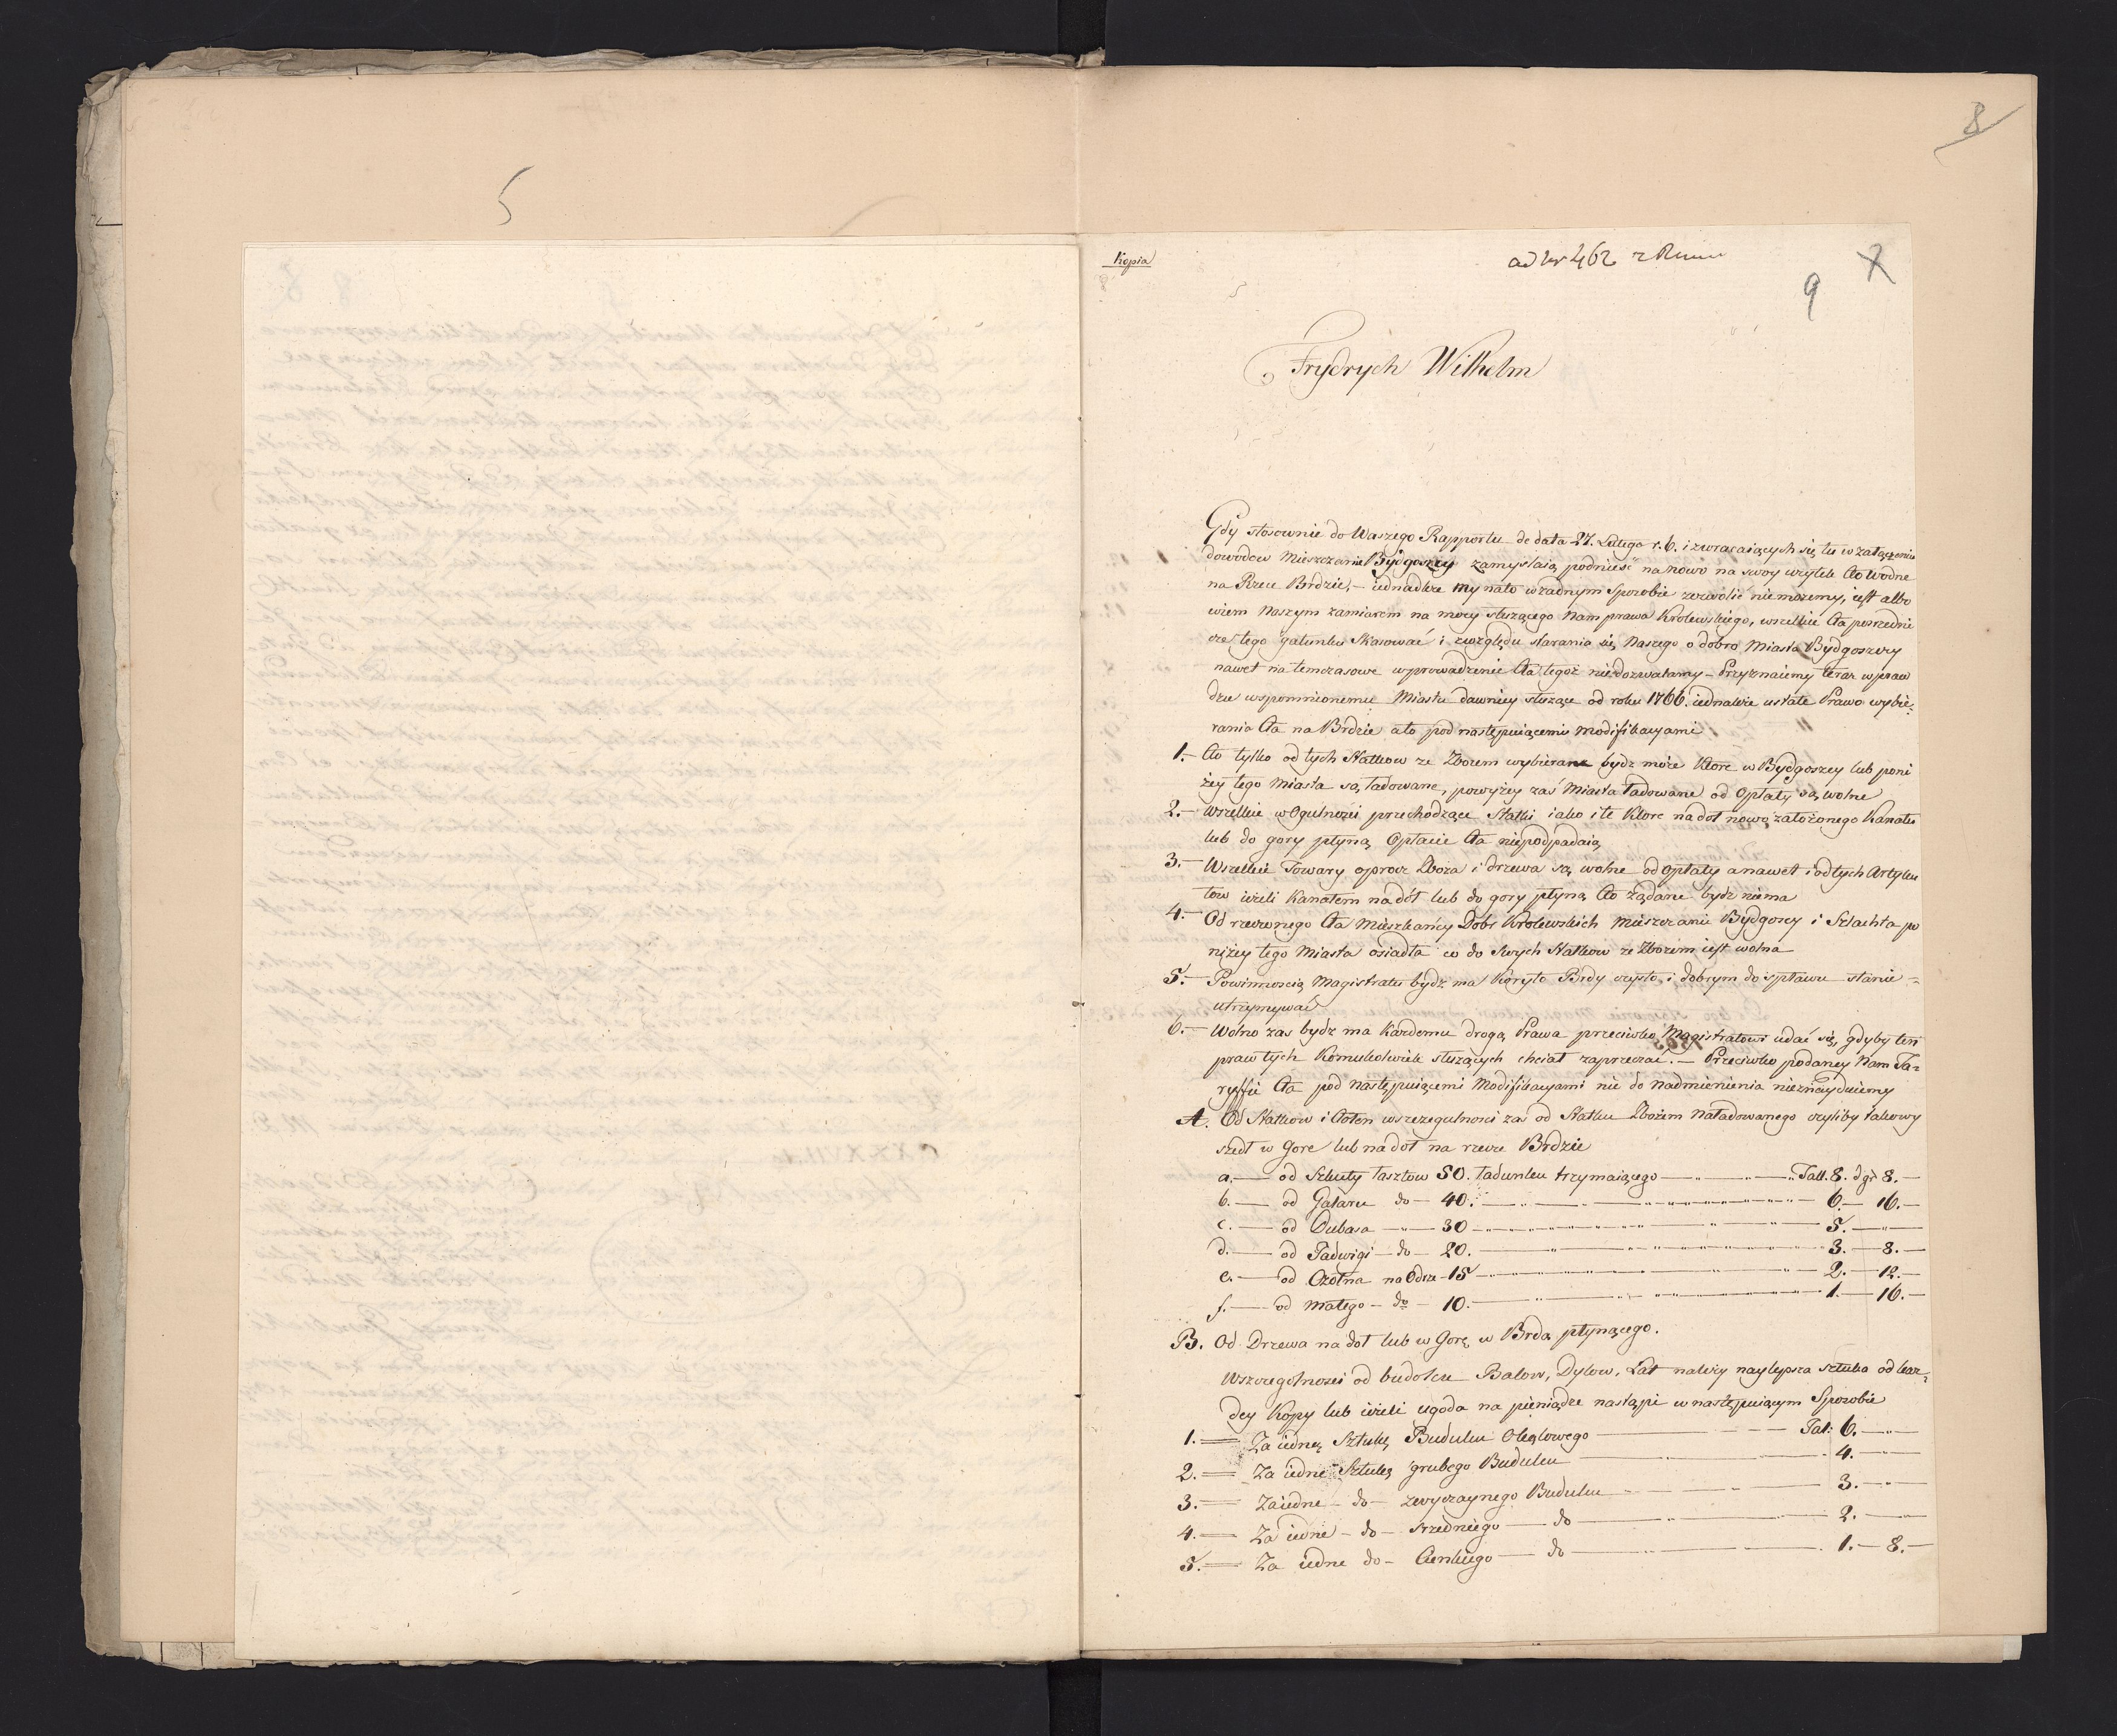 5
8
Kopia
ad Nr 462
7
9
Frydrych Wilhelm
Gdy stosownie do Waszego Rapportu de data 27. Lutego r. b. i zwracaiących się tu w załączeniu
dowodow Mieszczanie Bydgoscy zamyslaią podnieść na nowo na swoy użytek Cło wodne
na Rzece Brdzie, – iednakże My na to w żadnym Sposobie zezwolić nie możemy, iest albo
wiem Naszym zamiarem na mocy służącego Nam prawa Krolewskiego, wszelkie Cła pośredni
cze tego gatunku Skasować i z względu starania się Naszego o dobro Miasta Bydgoszczy
nawet na temczasowe wprowadzenie Cła tegoż niedozwalamy – Przyznaiemy teraz wpraw
dzie wspomnionemu Miastu dawniey służące od roku 1766. iednakże ustałe Prawo wybie„
rania Cła na Brdzie a to pod następuiącemi Modifikacyami
1.– Cło tylko od tych Statkow ze Zbożem wybierane bydz może które w Bydgoszczy lub poni
żey tego Miasta są ładowane, powyżey zaś Miasta ładowane od Opłaty są wolne
2.– Wszelkie w Ogulności przechodzące Statki iako i te Które na dół nowo założonego Kanału
lub do gory płyną Opłacie Cła niepodpadaią
3.– Wszelkie Towary oprocz Zboża i drzewa są wolne od Opłaty a nawet i od tych Artyku
łow ieżeli Kanałem na dół lub do gory płyną Cło żądane bydz niema
4.– Od rzeczonego Cła Mieszkańcy Dobr Krolewskich Mieszczanie Bydgoscy i Szlachta po
niżey tego Miasta osiadła co do Swych Statkow ze Zbożem iest wolna
5.– Powinnością Magistratu bydz ma Koryto Brdy czysto, i dobrym do spławu stanie =
utrzymywać
6.– Wolno zas bydz ma Każdemu drogą Prawa przeciwko Magistratowi udać się, gdyby ten
praw tych Komukolwiek służących chciał zaprzeczać. – Przeciwko podaney Nam Ta=
ryffie Cła pod następuiącemi Modifikacyami nic do Nadmienienia nieznayduiemy
A. Od Statkow i Czołen w szczegulności zaś od Statku Zbożem naładowanego czyliby takowy
szedł w Gore lub na dół na rzece Brdzie
a.— od Szkuty łasztow 50. ładunku trzymaiącego — „ — „ — Tall. 8. dgr 8.—
b.— od Galaru do — 40. — „ — 6.— 16.—
c.— od Dubasa — „ — 30 — „ — 5.— „ —
d.— od Jadwigi — do — 20. — „ — 3.— 8.—
e.— od Czółna na Odrze — 15 — „ — 2.— 12.—
f.— od małego — do — 10. — „ — 1.— 16.—
B. Od Drzewa na dół lub w Gorę w Brdą płynącego.
W szczegolności od budolcu Balow, Dylow, Łat należy naylepsza sztuka od każ„
dey Kopy lub ieżeli ugoda na pieniądze nastąpi w następuiącym Sposobie
1. = Za iednę Sztukę Budulcu Oleylowego — Tal: 6.— „ —
2. = Za iedne Sztukę grubego Budulcu — 4. —
3. = Za iedne — do — zwyczaynego Budulcu — 3.— „ —
4. = Za iedne — do — Srzedniego — do — 2. —
5. = Za iedne do — Cienkiego — do — 1.— 8.—